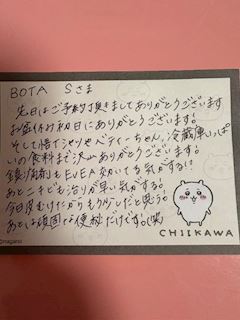 BOTA Sさま
先日はご予約頂きましてありがとうございます
お盆休み初日にありがとうございます!
そして悟てぃやりせべティーちゃん、冷蔵庫いっぱ
いの食料まで沢山ありがとうございます!
鎮痛剤もEVEA効いてる気がする!!
あとニキビも治りが早い気がする!
今日皮むけたからもう少しだと思う!
あとは頑固な便秘だけです。(笑)
CHIIKAWA
©nagano